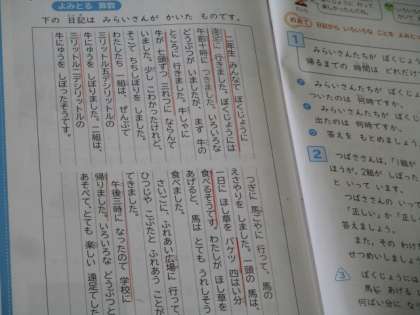 よみとる 算数
下の 日記は みらいさんが かいた ものです。
二年生 みんなで ぼくじょうに
遠足に 行きました。ぼくじょうには
午前十時に つきました。いろいろな
どうぶつが いましたが、まず 牛の
ところに 行きました。牛しゃに
牛が 七頭ずつ 三れつに ならんで
いました。少し こわかったけれど、
そこで ちちしぼりを しました。
わたしたち 一組は、ぜんぶで
三リットル五デシリットルの
牛にゅうを しぼりました。二組は、
三リットル二デシリットルの
牛にゅうを しぼったそうです。
つぎに 馬ごやに 行って、馬の
えさやりを しました。一頭の 馬は、
一日に ほし草を バケツ 四はい分
食べるそうです。わたしが ほし草を
あげると、馬は とても うれしそう
食べました。
さいごに、ふれあい広場に 行って、
ひつじや こぶたと ふれあう ことが
できました。
午後三時に なったので 学校に
帰りました。いろいろな どうぶつと
あそべて、とても 楽しい 遠足でした
1
みらいさんたちが ぼくじょう
帰るまでの 時間は どれだけ
みらいさんたちが ぼ
ついたのは 何時ですか。
みらいさんたちが ぼく
出たのは 何時ですか。
答えを もとめましょう
2
つばささんは、「1組が
ほうが、2組が しぼった
と いって います。
つばささんの いって
「正しい」か 「正しく
答えましょう。
また、その わけ
せつめいしましょ
3
ぼくじょうには
馬に あげる
何ばい分に な